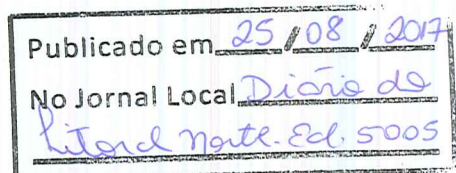 Publicado em 25/08/2017
No Jornal Local Diário do
Litoral Norte. Ed. 5005